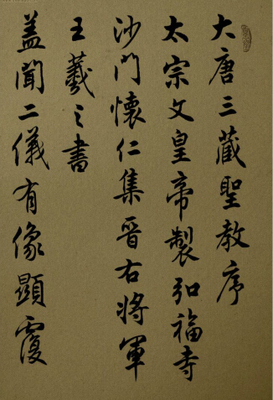 大唐三藏聖教序
太宗文皇帝製弘福寺
沙門懷仁集晉右將軍
王羲之書
蓋聞二儀有像顯覆